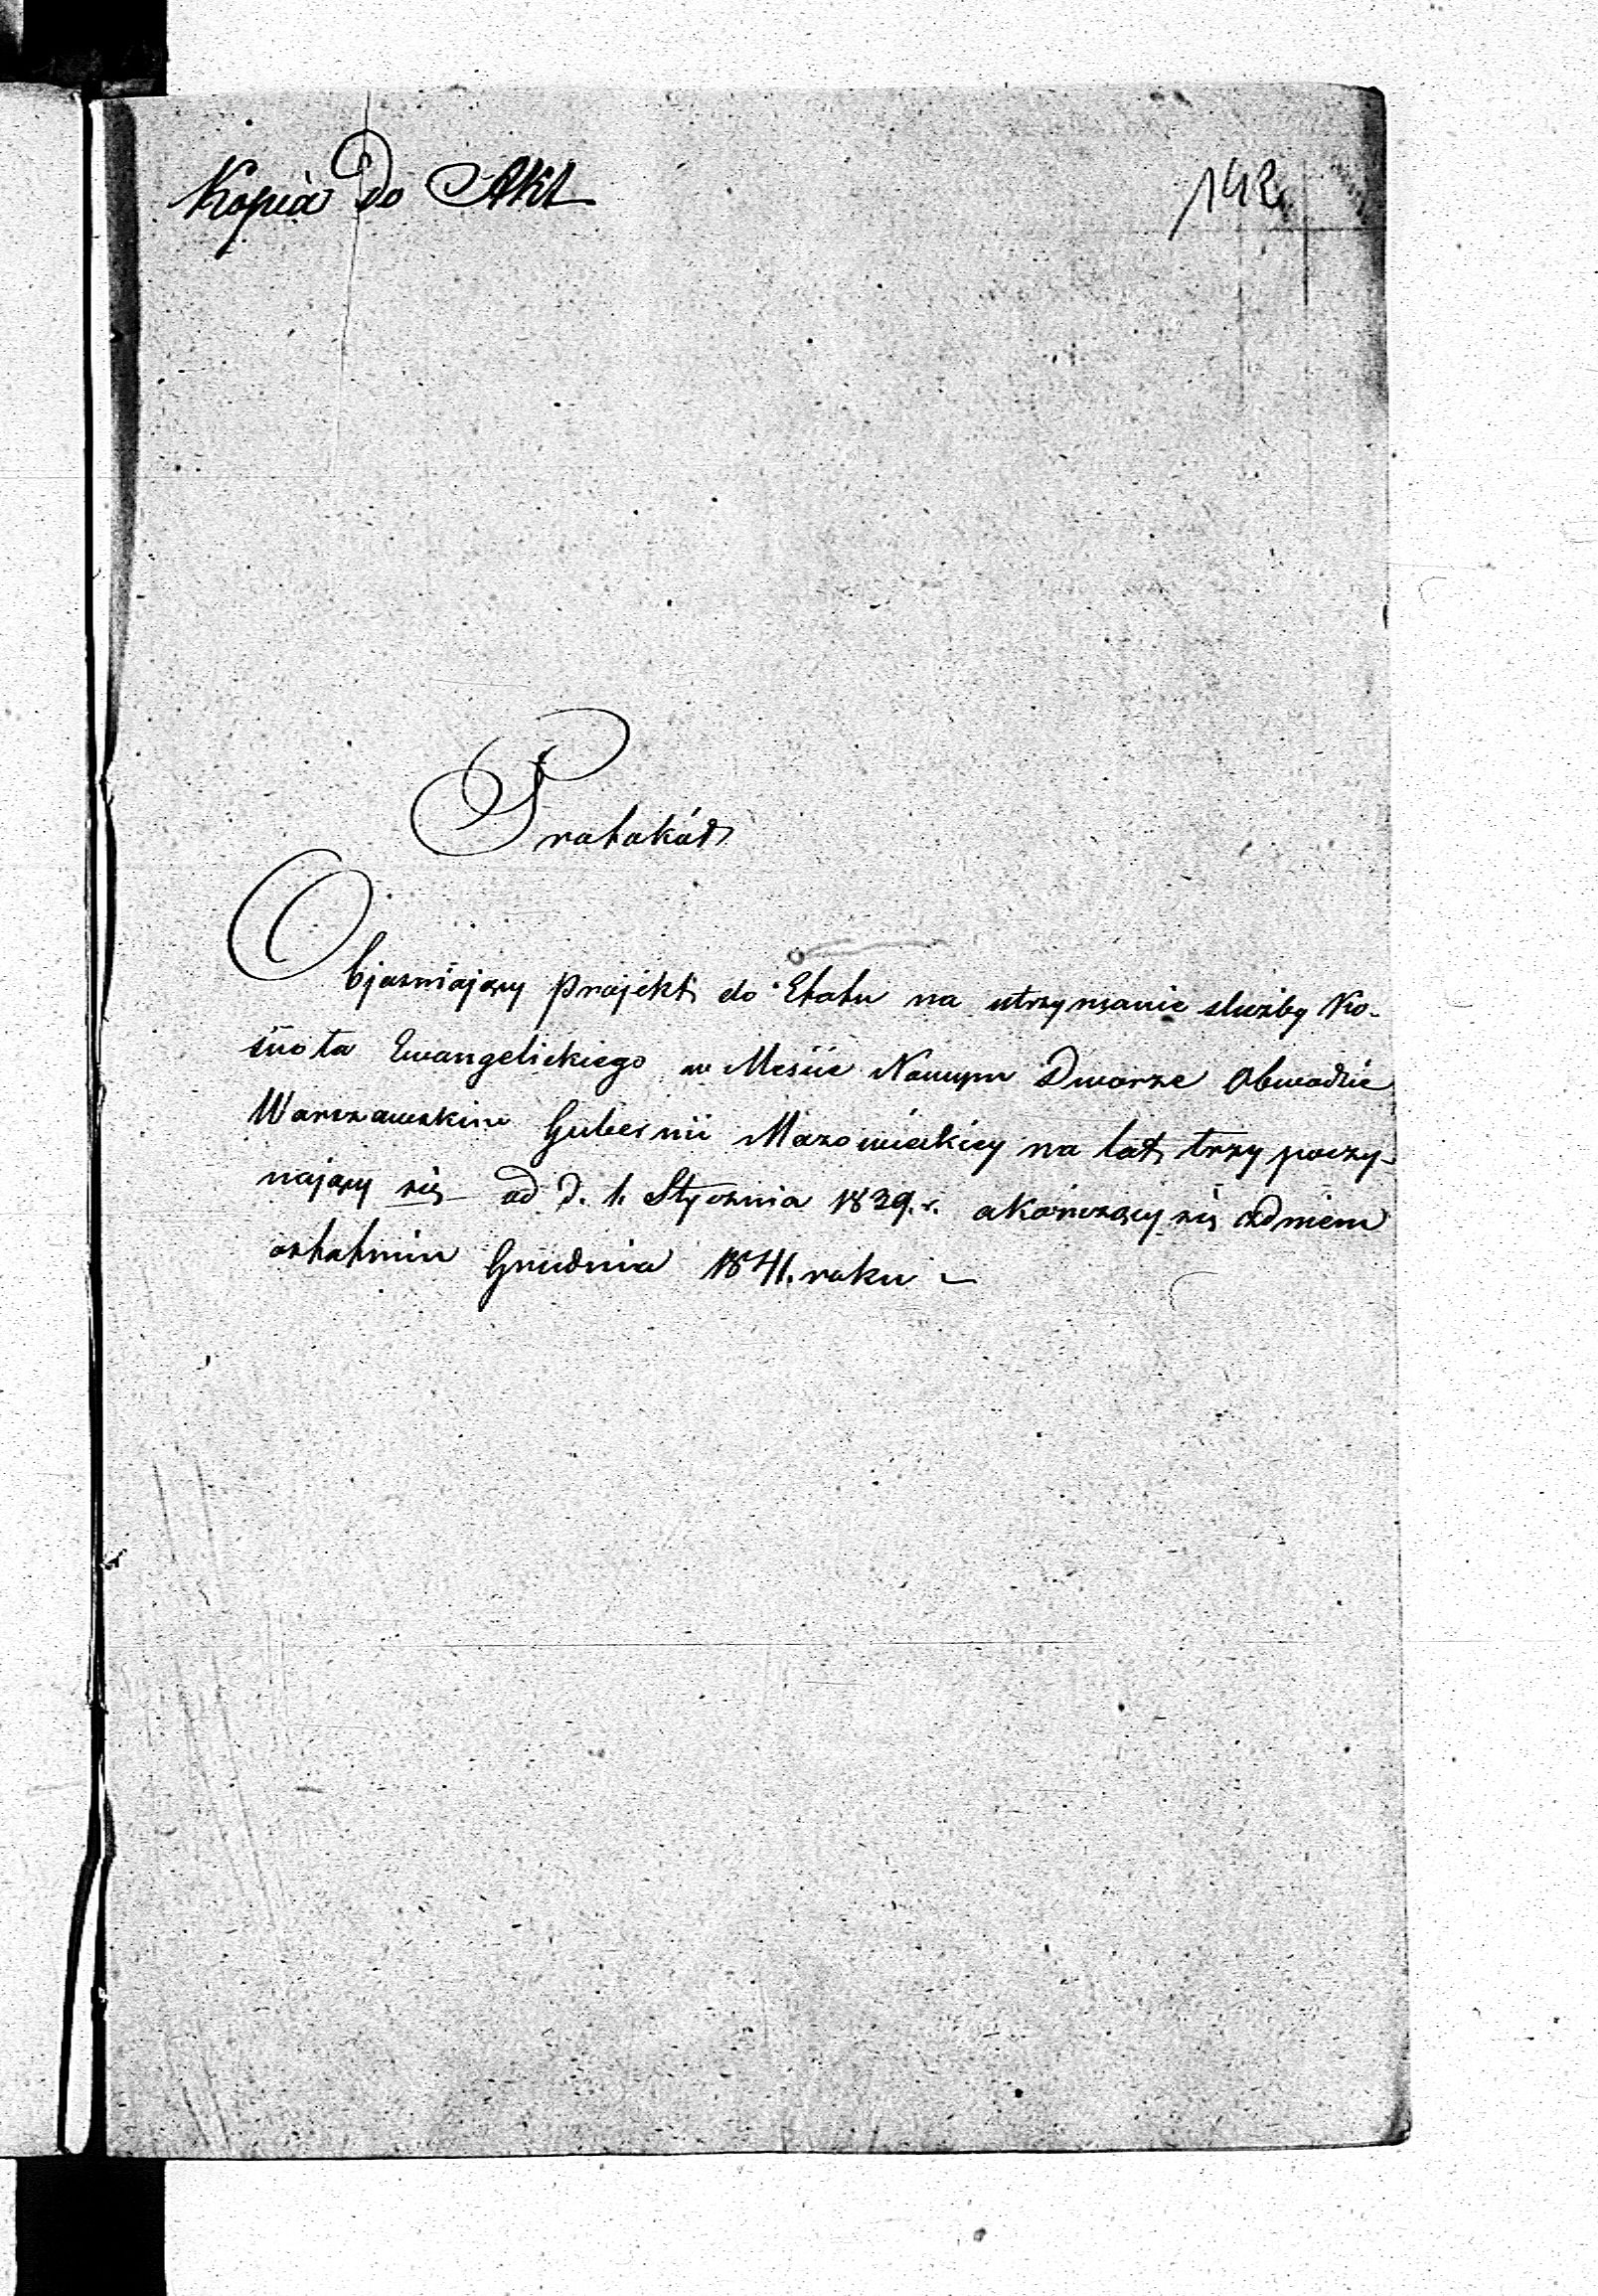 Kopia Do Akt
142
Protokół
Objasniaiący projekt do Etatu na utrzymanie służby Ko-
ścioła Ewangelickiego w Mieście Nowym Dworze Obwodzie
Warszawskim Gubernii Mazowieckiey na lat trzy poczy-
naiący się od d. 1. Stycznia 1839. r. a kończący się z dniem
ostatnim Grudnia 1841. roku